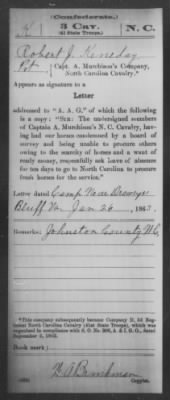 (Confederate.)
K 3 Cav. N.C.
(41 State Troops.)
Robert J. Keneday
Pvt., Capt. A. Murchison's Company,
North Carolina Cavalry.*
Appears as signature to a
Letter
addressed to "A. A. G." of which the following
is a copy: "Sir: The undersigned members
of Captain A. Murchison's N. C. Cavalry, having
had our horses condemned by a board of
survey and being unable to procure others
owing to the scarcity of horses and a want of
ready money, respectfully ask leave of absence
for ten days to go to North Carolina to procure
fresh horses for the service."
Letter dated Camp Near Drewrys
Bluff Va. Jan 26, 1863.
Remarks: Johnston County N.C.
*This company subsequently became Company K, 3d Regiment
North Carolina Cavalry (41st State Troops), which was
organized in compliance with S. O. No. 206, A. & I. G. O., dated
September 3, 1862.
Book mark:
Copyist.